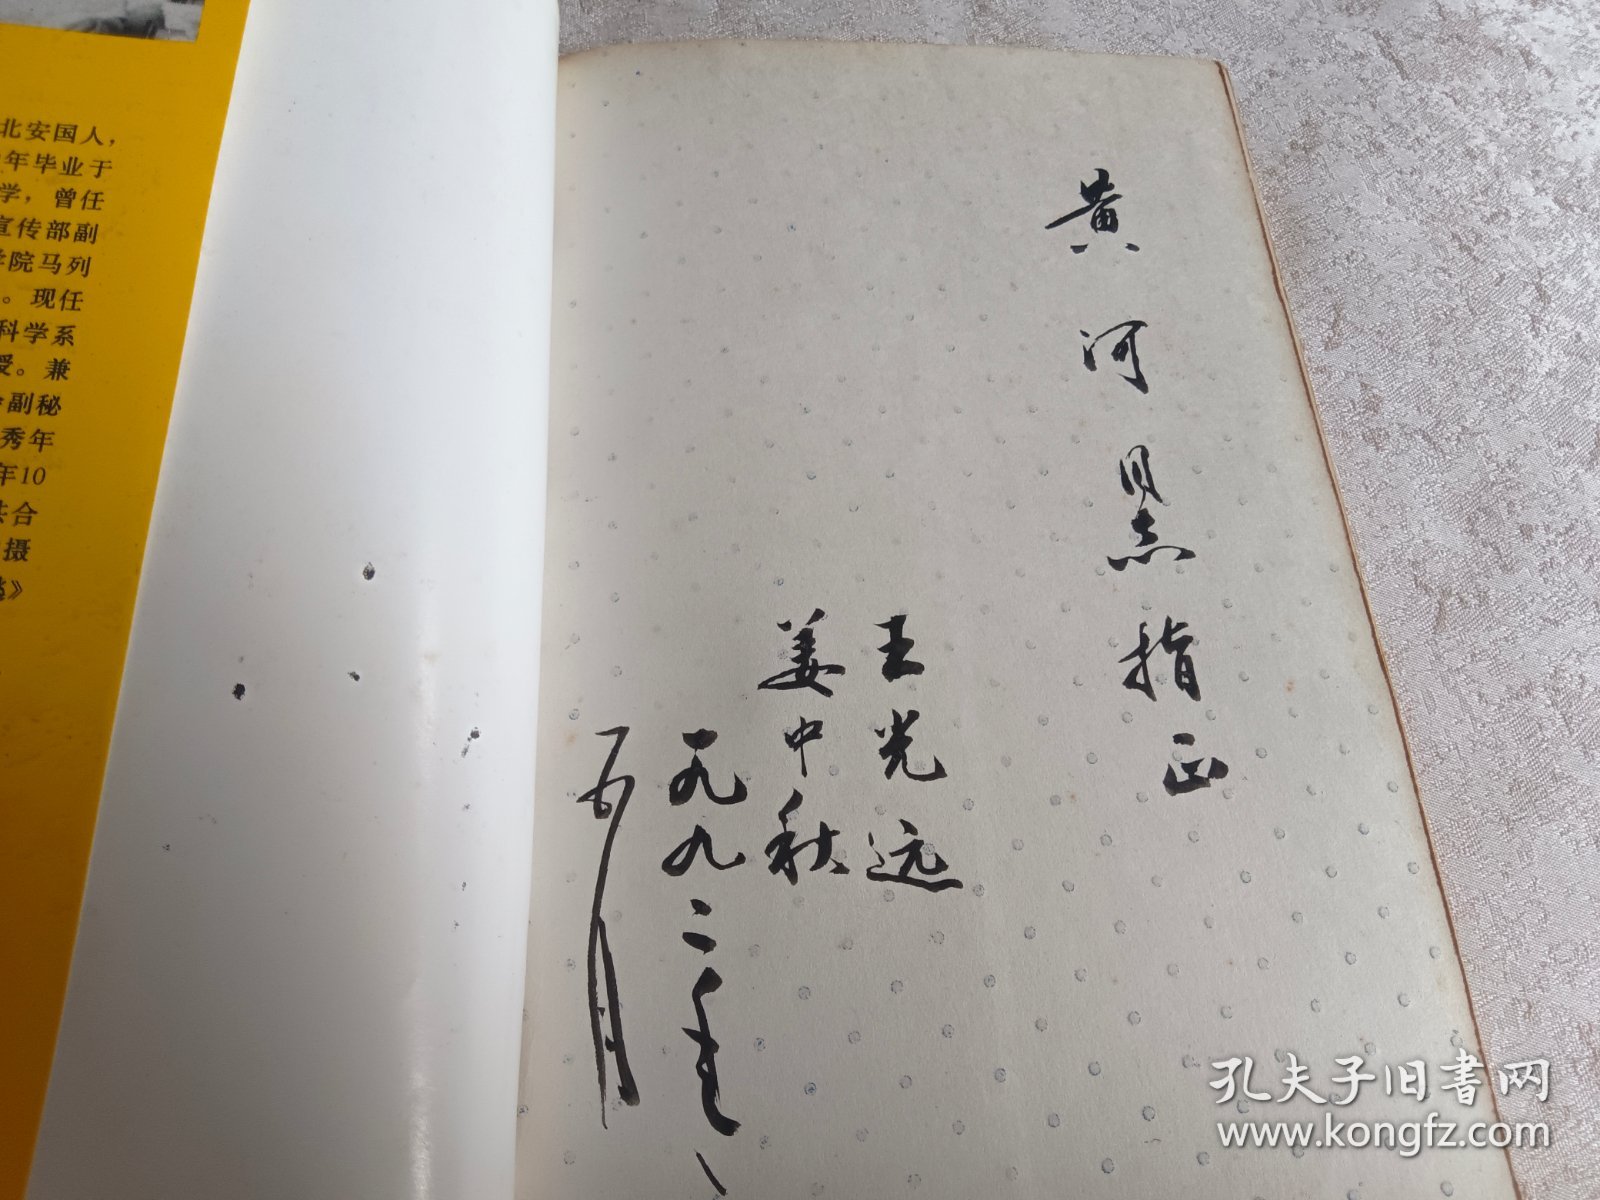 北安国人，
年毕业于
学，曾任
宣传部副
学院马列
。现任
科学系
授。兼
副秘
秀年
年10
共合
摄
》
黄河同志指正
王光远
姜中秋
一九九二年
五月
孔夫子旧书网
www.kongfz.com